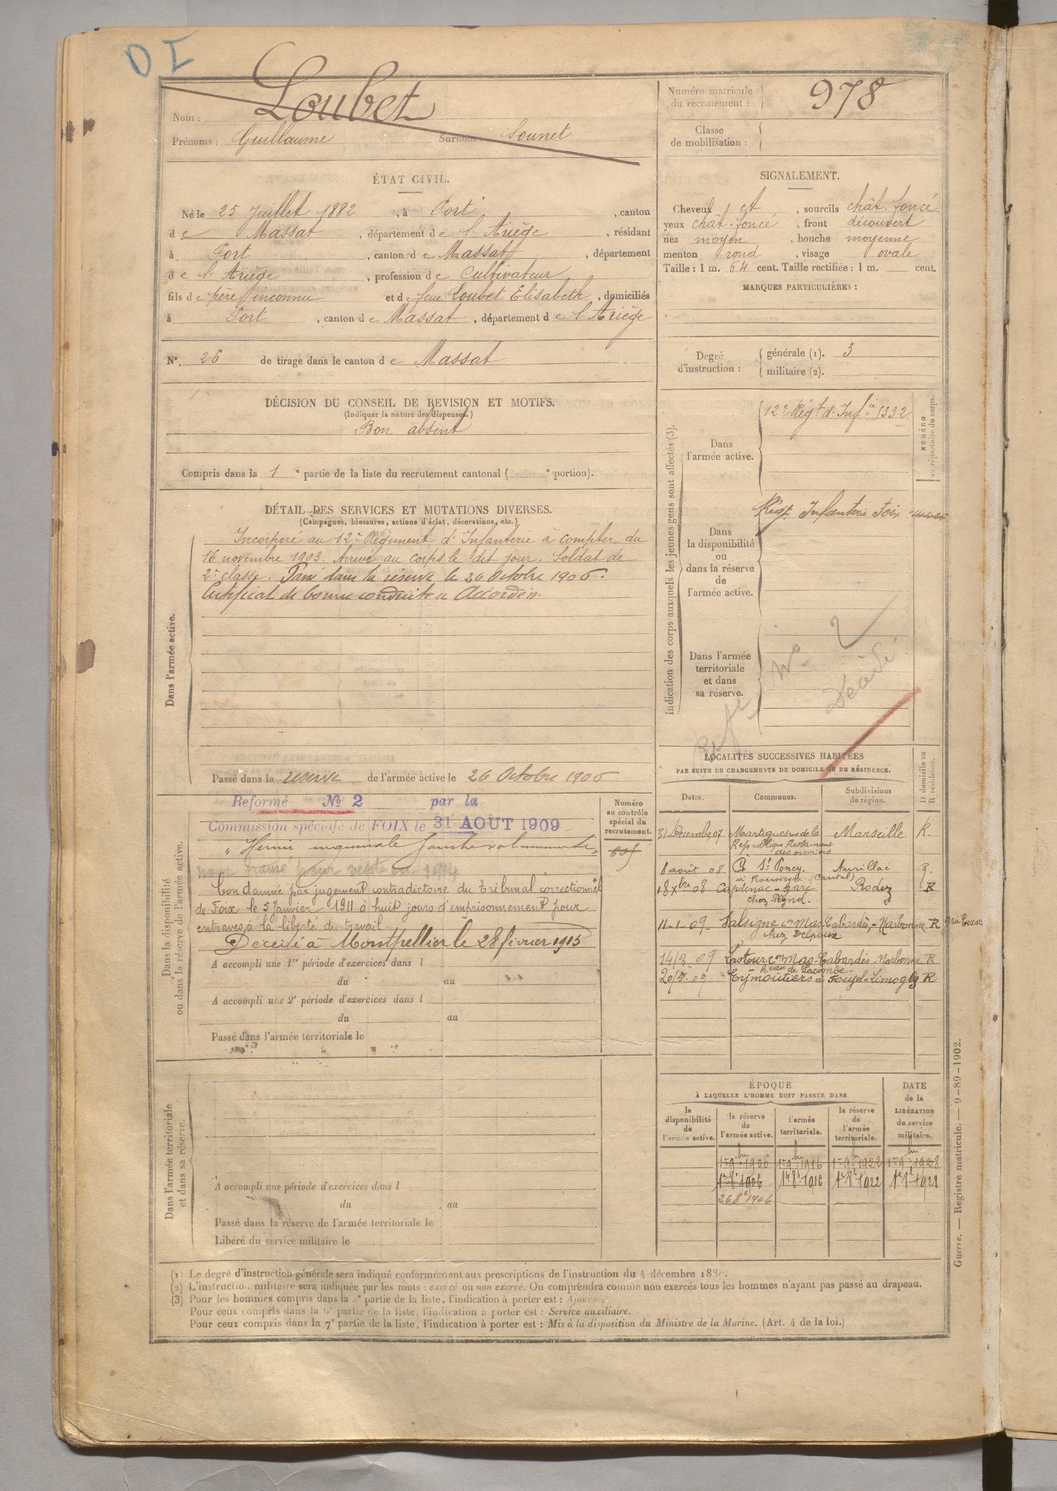 DI
Nom : Loubet
Prénoms : Guillaume Surnom : Sounet
ÉTAT CIVIL.
Né le 25 Juillet 1882 , à Port , canton
de Massat , département de l'Ariège , résidant
à Port , canton de Massat , département
de l'Ariège , profession de Cultivateur
fils de père inconnu et de feue Loubet Elisabeth , domiciliés
à Port , canton de Massat , département de l'Ariège
N° 26 de tirage dans le canton de Massat
DÉCISION DU CONSEIL DE REVISION ET MOTIFS.
(Indiquer la nature des dispenses.)
Bon absent
Compris dans la 1e partie de la liste du recrutement cantonal ( e portion).
DÉTAIL DES SERVICES ET MUTATIONS DIVERSES.
(Campagnes, blessures, actions d'éclat, décorations, etc.)
Dans l'armée active.
Incorporé au 12e Régiment d'Infanterie à compter du
16 novembre 1903. Arrivé au corps le dit jour. Soldat de
2e classe. Passé dans la réserve le 26 Octobre 1906.
Certificat de bonne conduite « Accordé ».
Passé dans la réserve de l'armée active le 26 Octobre 1906
Dans la disponibilité
ou dans la réserve de l'armée active.
Réformé No 2 par la
Commission spéciale de FOIX le 31 AOUT 1909
« Hernie inguinale gauche volumineuse »
Condamné par jugement contradictoire du Tribunal correctionnel
de Foix le 5 Janvier 1911 à huit jours d'emprisonnement pour
entraves à la liberté du travail.
Décédé à Montpellier le 28 février 1915
A accompli une 1re période d'exercices dans l
du au
A accompli une 2e période d'exercices dans l
du au
Passé dans l'armée territoriale le
Numéro
au contrôle
spécial du
recrutement.
Dans l'armée territoriale
et dans sa réserve.
A accompli une période d'exercices dans l
du au
Passé dans la réserve de l'armée territoriale le
Libéré du service militaire le
Numéro matricule
du recrutement : 978
Classe
de mobilisation :
SIGNALEMENT.
Cheveux et , sourcils chât. foncé
yeux chât. foncé , front découvert
nez moyen , bouche moyenne
menton rond , visage ovale
Taille : 1 m. 64 cent. Taille rectifiée : 1 m. cent.
MARQUES PARTICULIÈRES :
Degré
d'instruction :
générale (1). 3
militaire (2).
Indication des corps auxquels les jeunes gens sont affectés (3).
Dans
l'armée active.
12e Régt d'Infie 1332
NUMÉRO
au répertoire du corps.
Dans
la disponibilité
ou
dans la réserve
de
l'armée active.
Régt Infanterie Foix
Dans l'armée
territoriale
et dans
sa réserve.
Réfé No 2
Décédé
LOCALITÉS SUCCESSIVES HABITÉES
PAR SUITE DE CHANGEMENTS DE DOMICILE OU DE RÉSIDENCE.
Dates. Communes. Subdivisions
de région.
D domicile ou
R résidence.
Martigues Marseille R.
8 août 08 St Poncy Aurillac
(Cantal)
08 Capdenac-gare Rodez R
11-1-09 Salsigne con Mas-Cabardès - Narbonne R
chez Delpoux
14/3 09 Lastours con Mas-Cabardès - Narbonne R
09 Eymoutiers Limoges R
ÉPOQUE
À LAQUELLE L'HOMME DOIT PASSER DANS
la
disponibilité
de
l'armée active.
la réserve
de
l'armée active.
l'armée
territoriale.
la réserve
de
l'armée
territoriale.
DATE
de la
LIBÉRATION
du service
militaire.
1er 9bre 1906 1er 9bre 1916 1er 9bre 1922 1er 9bre 1928
1er 8bre 1906 1er 8bre 1916 1er 8bre 1922 1er 8bre 1928
26 8bre 1906
Guerre. — Registre matricule. — 9-89-1902.
(1) Le degré d'instruction générale sera indiqué conformément aux prescriptions de l'instruction du 4 décembre
(2) L'instruction militaire sera indiquée par les mots : exercé ou non exercé. On comprendra comme non exercés tous les hommes n'ayant pas passé au drapeau.
(3) Pour les hommes compris dans la partie de la liste, l'indication à porter est :
Pour ceux compris dans la 6e partie de la liste, l'indication à porter est : Service auxiliaire.
Pour ceux compris dans la 7e partie de la liste, l'indication à porter est : Mis à la disposition du Ministre de la Marine. (Art. 4 de la loi.)